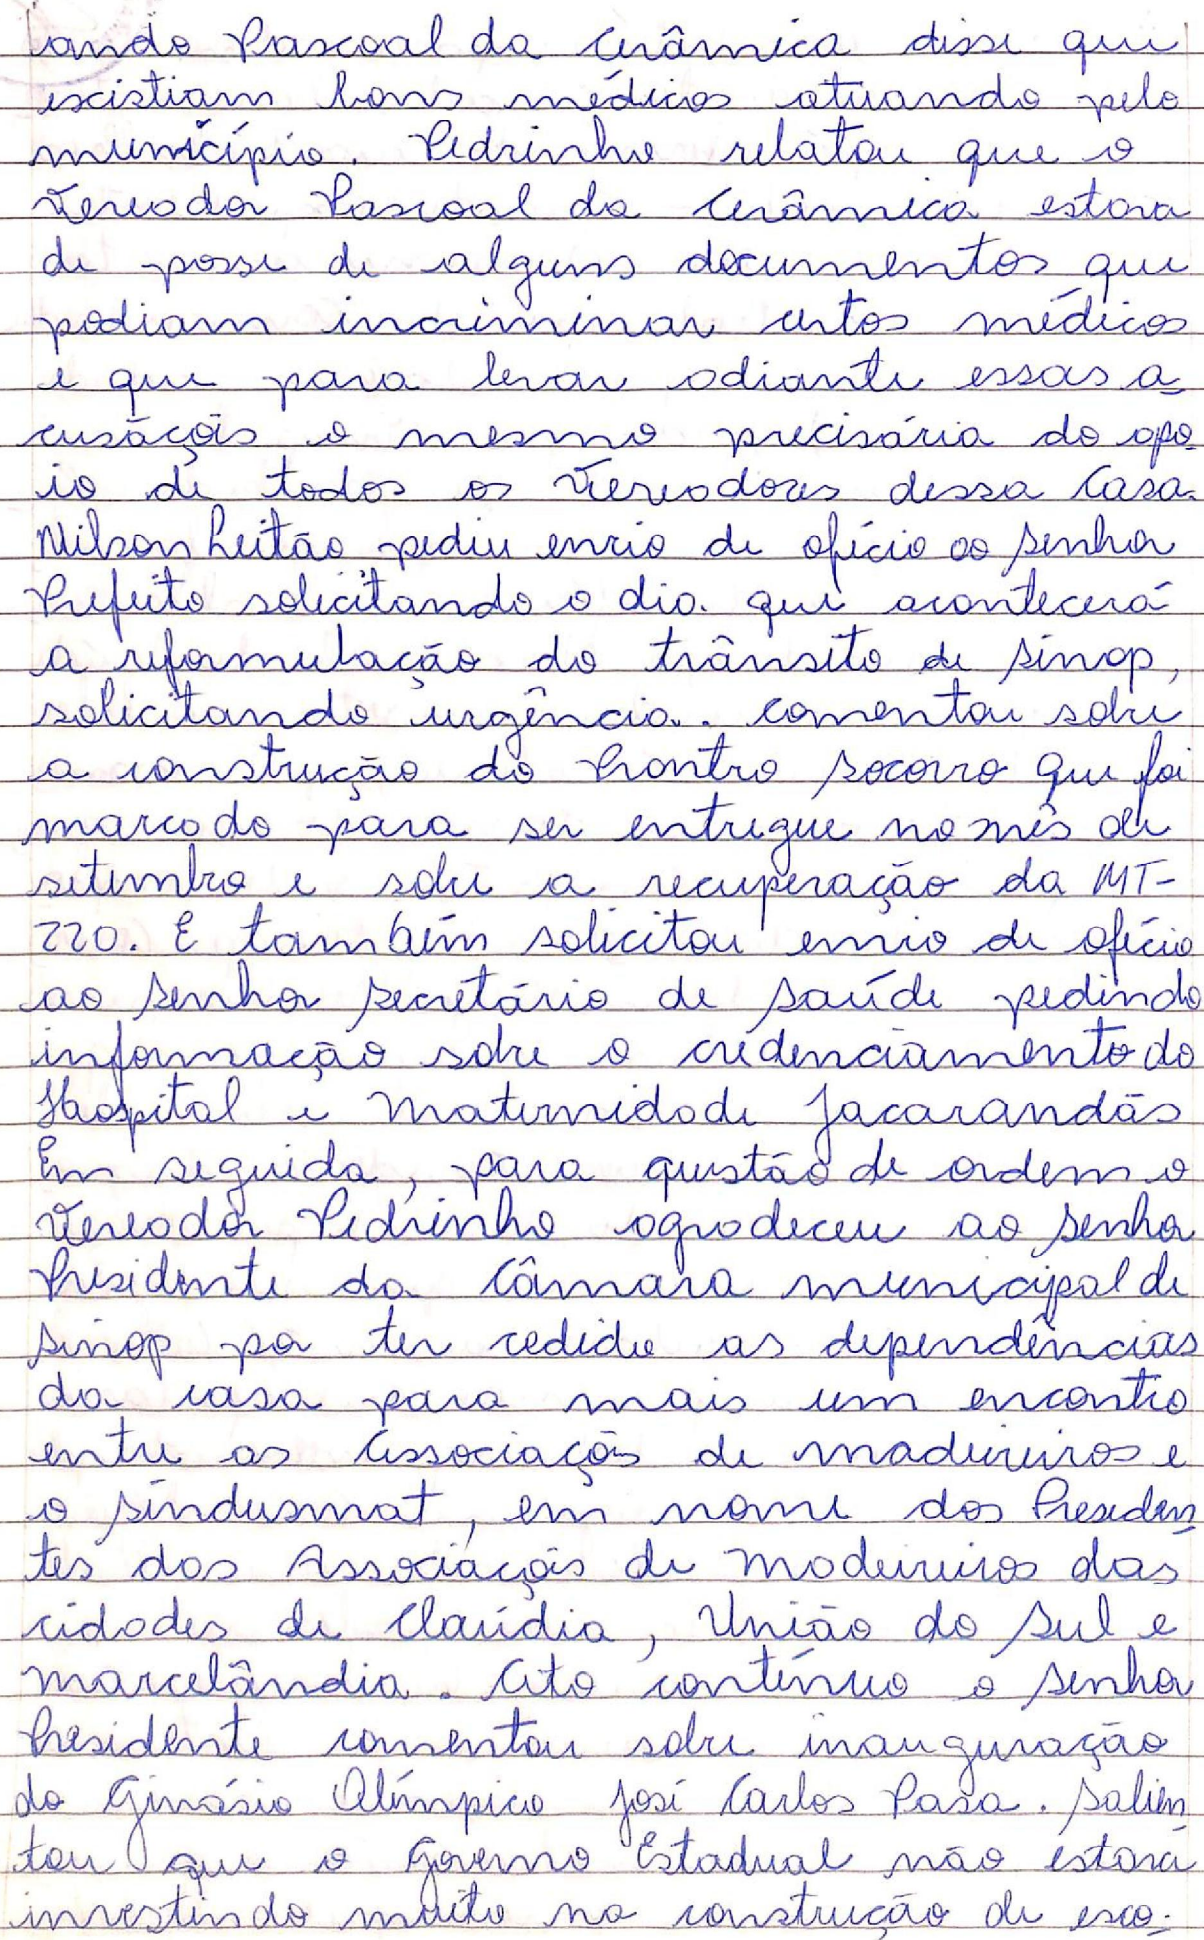 iando Pascoal da Cerâmica disse que
existiam bons médicos atuando pelo
município. Pedrinho relatou que o
Vereador Pascoal da Cerâmica estava
de posse de alguns documentos que
podiam incriminar certos médicos
e que para levar adiante essas a-
cusações o mesmo precisária do apo-
io de todos os Vereadores dessa Casa.
Nilson Leitão pediu envio de ofício ao Senhor
Prefeito solicitando o dia que acontecerá
a reformulação do trânsito de Sinop,
solicitando urgência. comentou sobre
a construção do Prontro Socorro que foi
marcado para ser entregue no mês de
setembro e sobre a recuperação da MT-
220. E também solicitou envio de ofício
ao Senhor Secretário de Saúde pedindo
informação sobre o credenciamento do
Hospital e Maternidade Jacarandás
Em seguida, para questão de ordem o
Vereador Pedrinho agradeceu ao Senhor
Presidente da Câmara municipal de
Sinop por ter cedido as dependências
da casa para mais um encontro
entre as Associações de madeireiros e
o Sindusmat, em nome dos Presiden-
tes das Associações de Madeireiros das
cidades de Claúdia, União do Sul e
Marcelândia. Ato contínuo o Senhor
Presidente comentou sobre inauguração
do Ginásio Olímpico José Carlos Pasa. Salien-
tou que o Governo Estadual não estava
investindo muito na construção de esco-